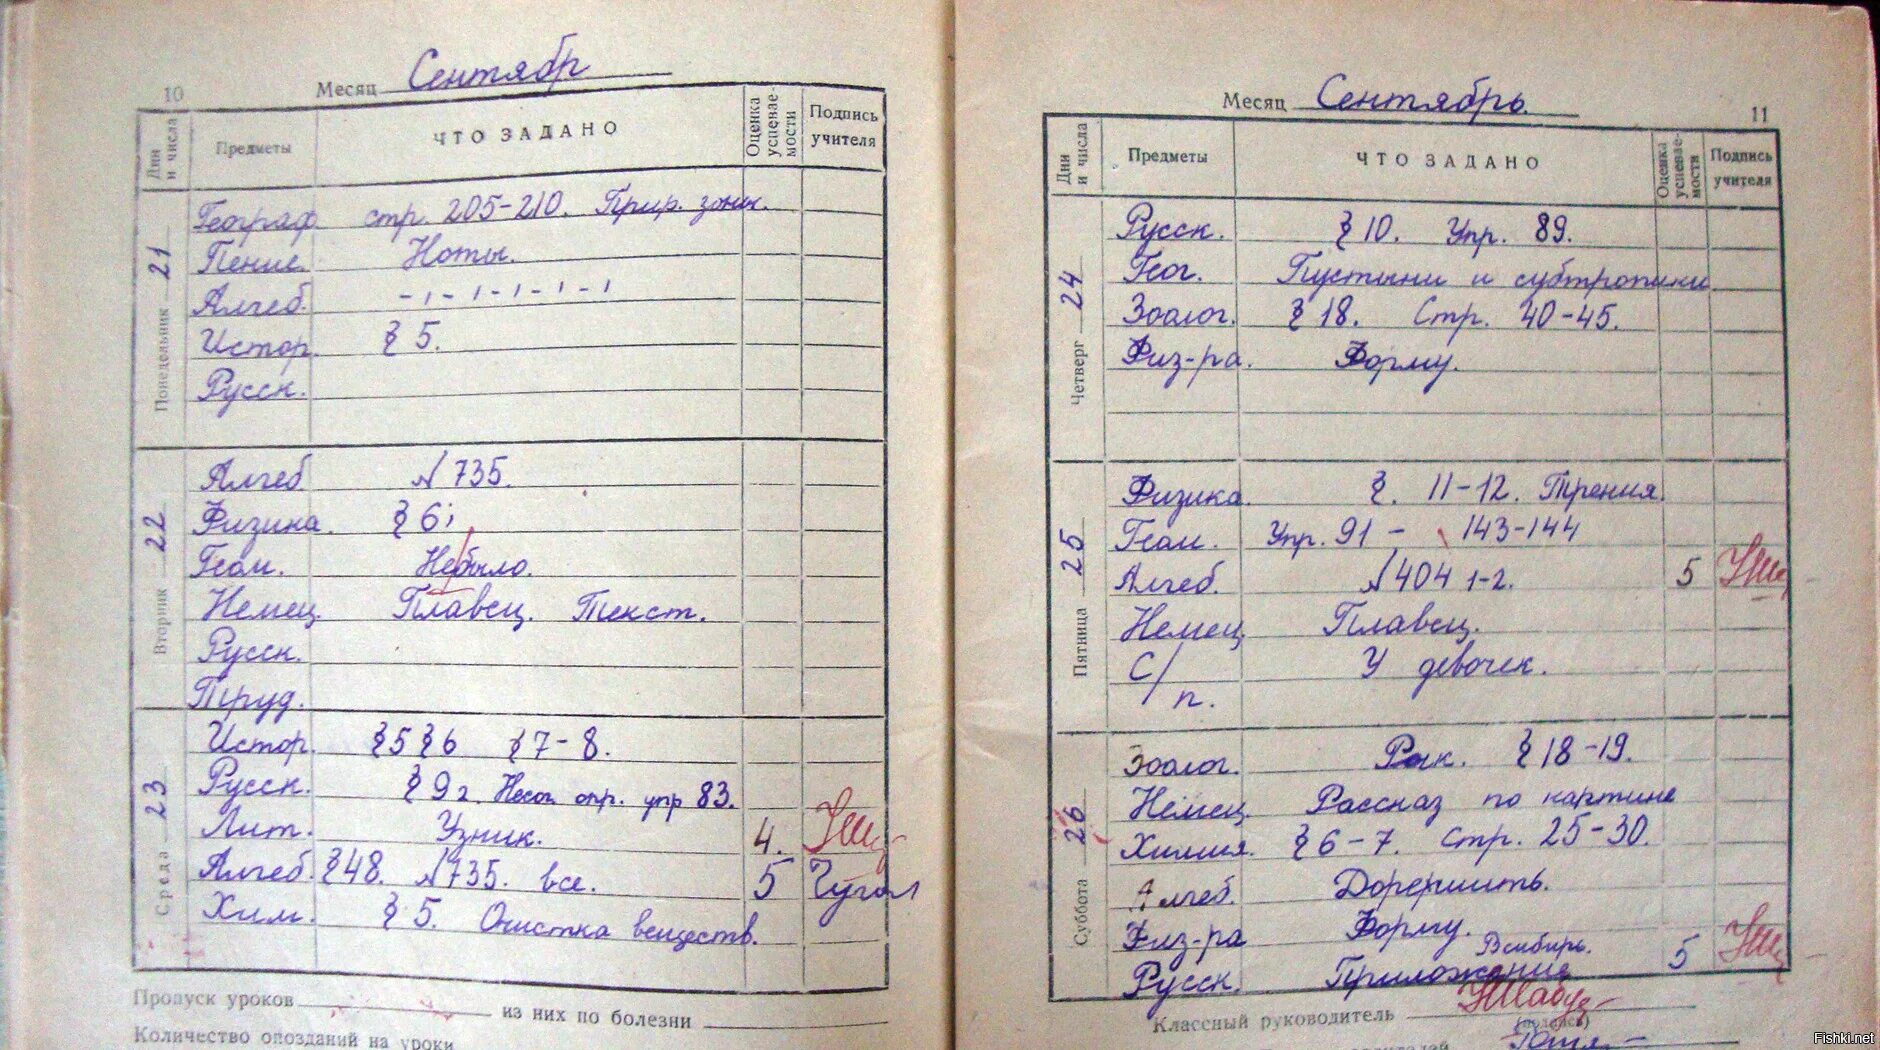 10 Месяц Сентябр
Дни и числа Предметы ЧТО ЗАДАНО Оценка успевае-мости Подпись учителя
Понедельник 21
Географ. стр. 205-210. Прир. зоны.
Пение. Ноты.
Алгеб. - ı - ı - ı - ı - ı
Истор. § 5.
Русск.
Вторник 22
Алгеб. № 735.
Физика. § 6;
Геом. Небыло.
Немец. Плавец. Текст.
Русск.
Труд.
Среда 23
Истор. § 5 § 6 § 7-8.
Русск. § 9 г. Несог. опр. упр 83.
Лит. Узник. 4.
Алгеб. § 48. № 735. все. 5
Хим. § 5. Очистка веществ.
Пропуск уроков из них по болезни
Количество опозданий на уроки
Месяц Сентябрь. 11
Дни и числа Предметы ЧТО ЗАДАНО Оценка успевае-мости Подпись учителя
Четверг 24
Русск. § 10. Упр. 89.
Геог. Пустыни и субтропики
Зоолог. § 18. Стр. 40-45.
Физ-ра. Форму.
Пятница 25
Физика. §. 11-12. Трения.
Геом. Упр. 91 - 143-144
Алгеб. № 404 1-2. 5
Немец. Плавец.
С/п. У девочек.
Суббота 26
Зоолог. Рак. § 18-19.
Немец. Рассказ по картине
Химия. § 6-7. Стр. 25-30.
Алгеб. Дорешить.
Физ-ра Форму.
Всибирь.
Русск. Приложения 5
Классный руководитель
(подпись)
Fishki.net